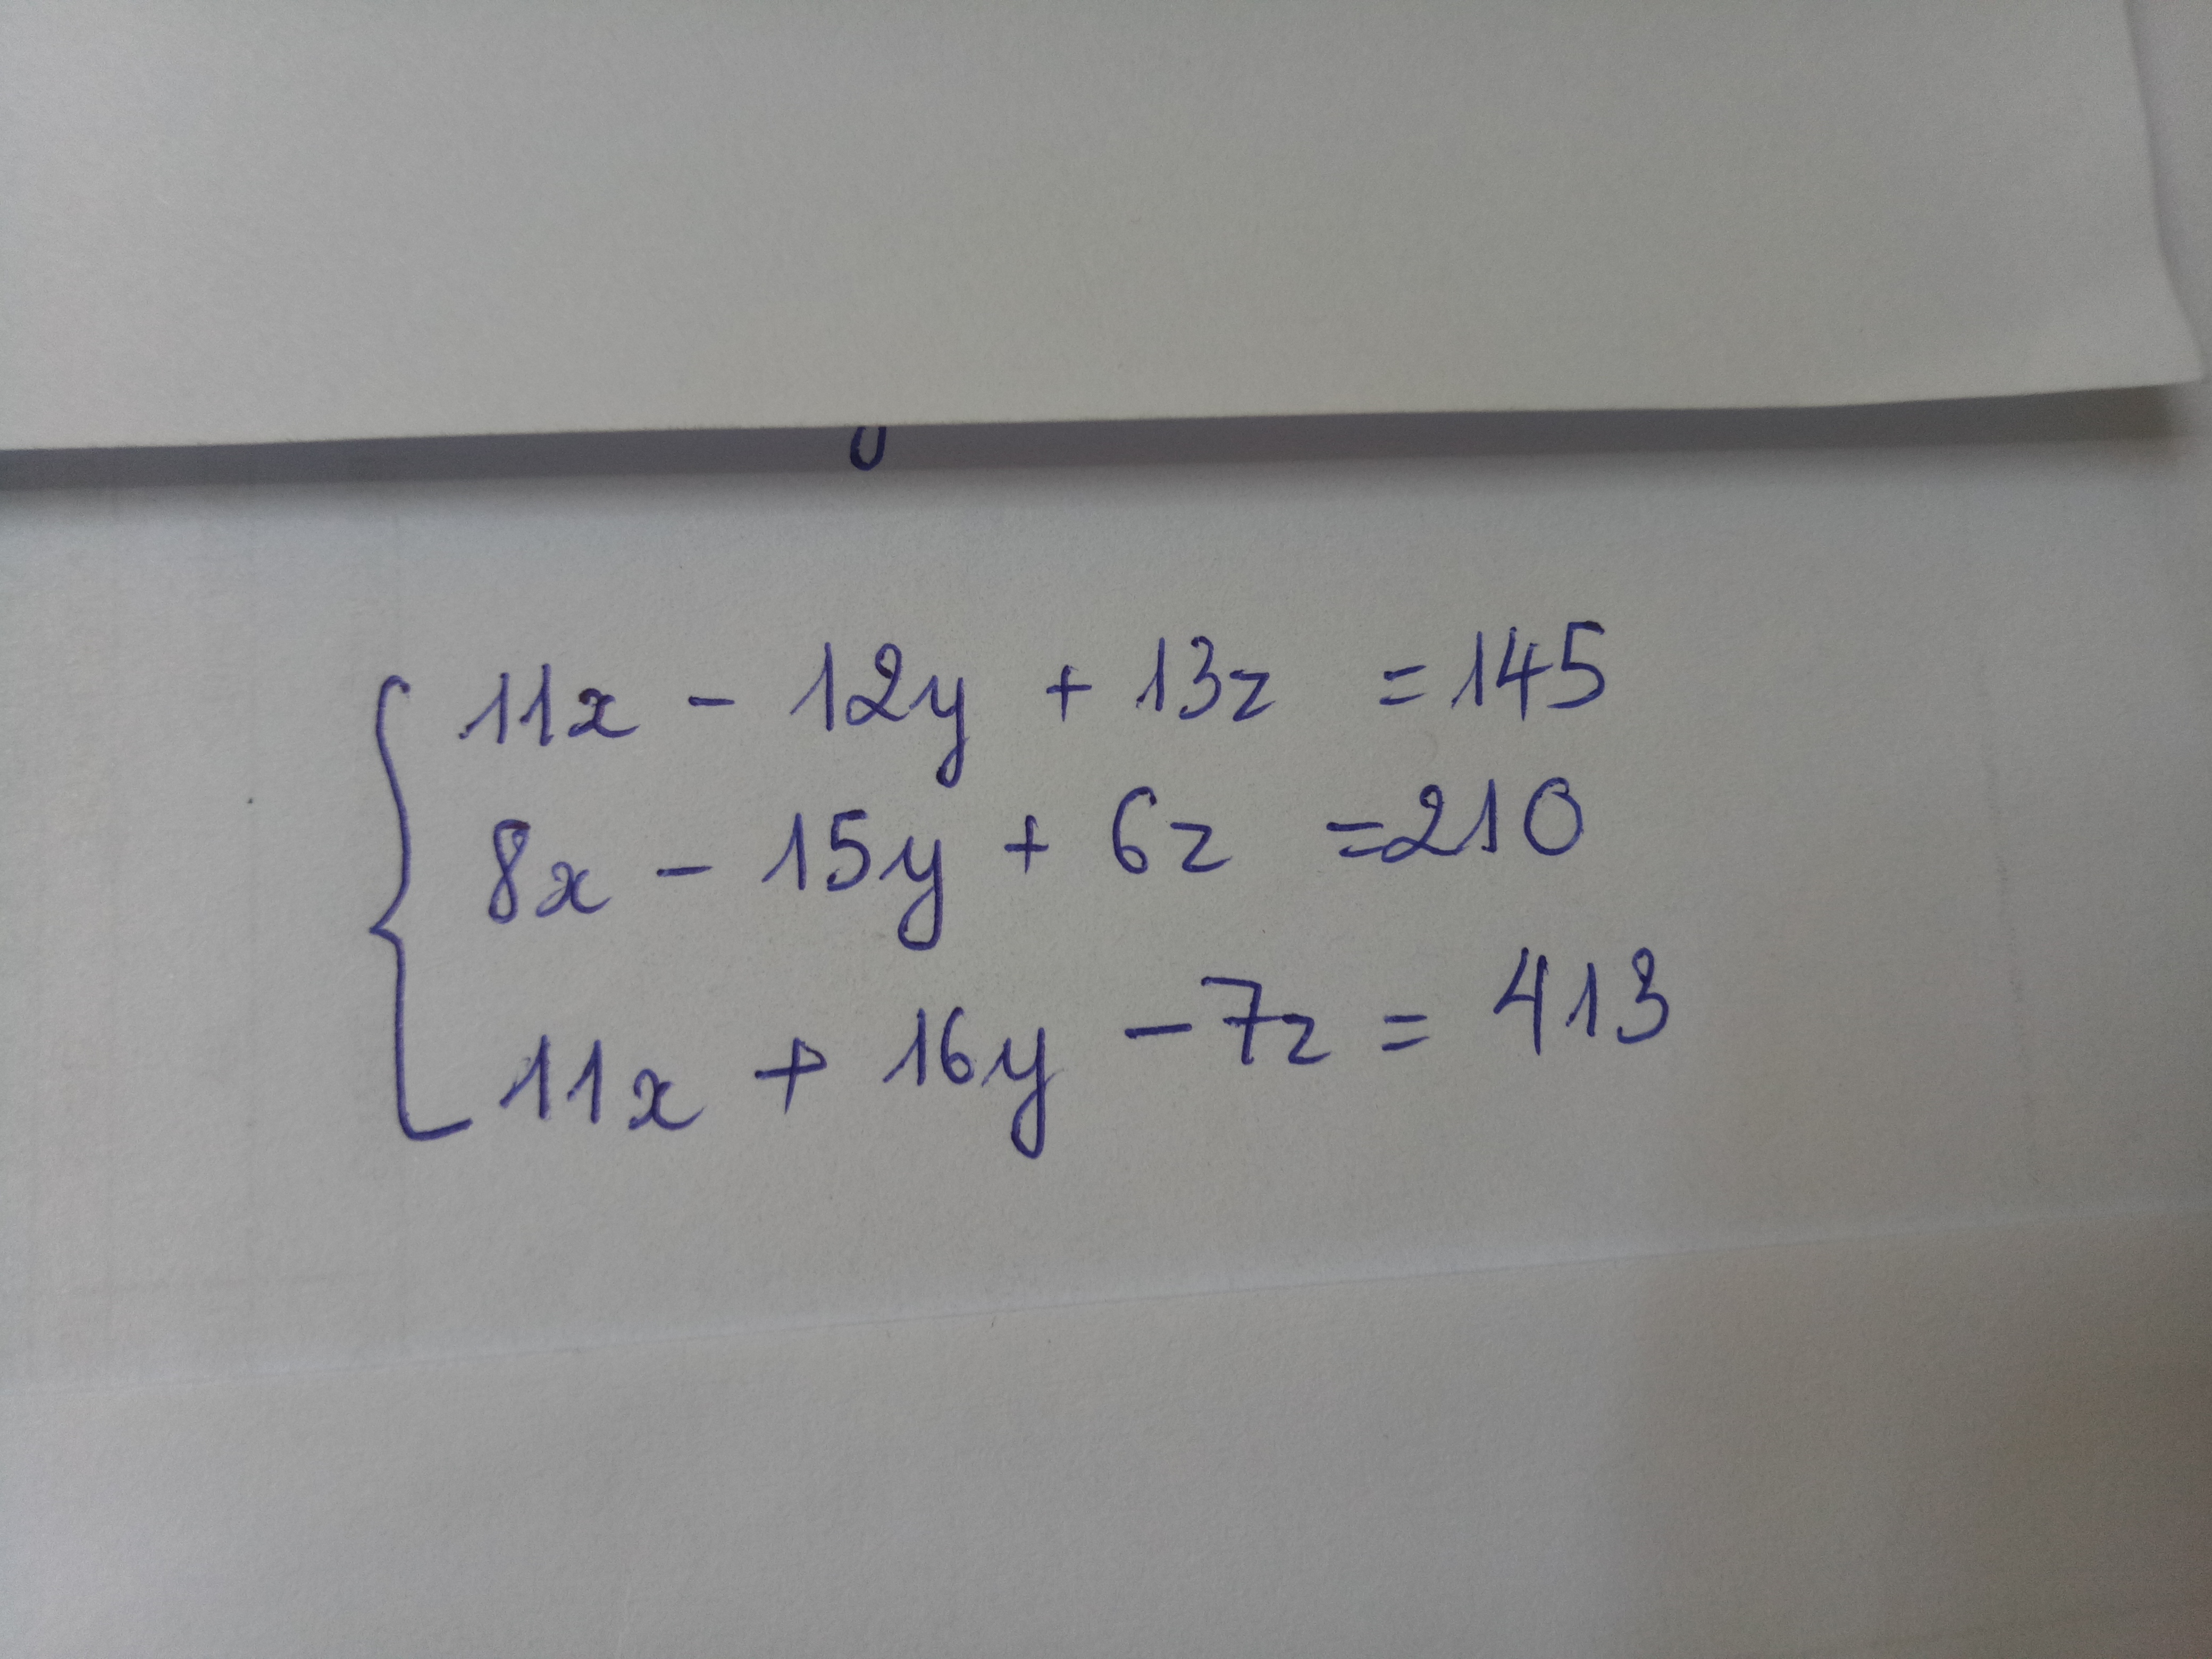 11x - 12y + 13z = 145
8x - 15y + 6z = 210
11x + 16y - 7z = 413